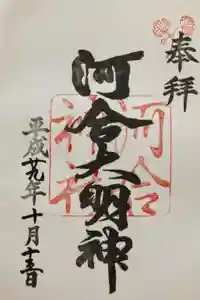 奉拝
河合大明神
河合
神社
平成廿九年十月十三日